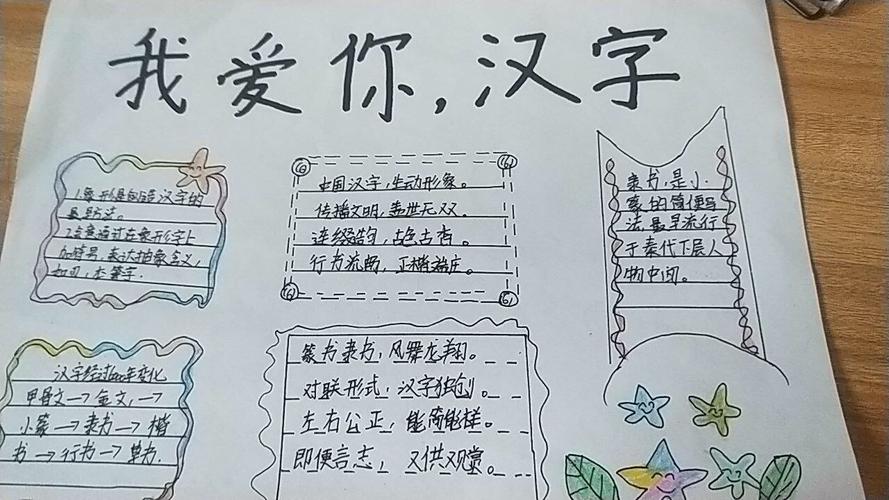 我爱你，汉字
1.象形是创造汉字的
最早方法。
2.会意通过在象形字上
加符号，表达抽象含义，
如刃，本等字.
中国汉字，生动形象。
传播文明，盖世无双。
连缀韵，古色古香。
行书流畅，正楷端庄。
隶书，是小
篆的简便写
法最早流行
于秦代下层人
物中间。
汉字经过年变化
甲骨文→金文，→
小篆→隶书→楷
书→行书→草书.
篆书隶书，风舞龙翔。
对联形式，汉字独创。
左右公正，能简能样。
即便言志，又供观赏。